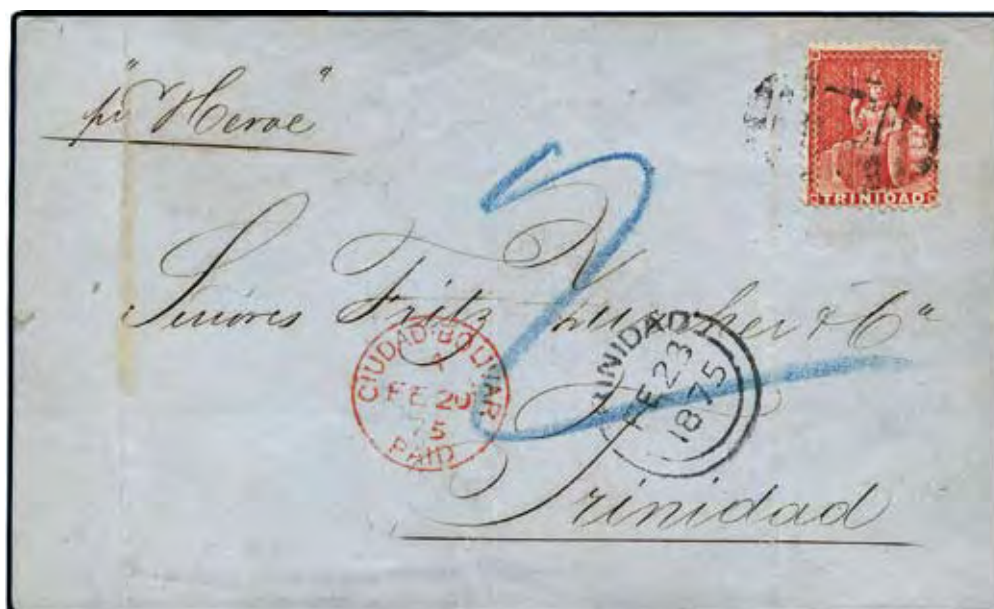 "Heroe"
TRINIDAD
Señores Fritz & Cª
CIUDAD-BOLIVAR
FE 20
75
PAID
TRINIDAD
FE 23
1875
2
Trinidad